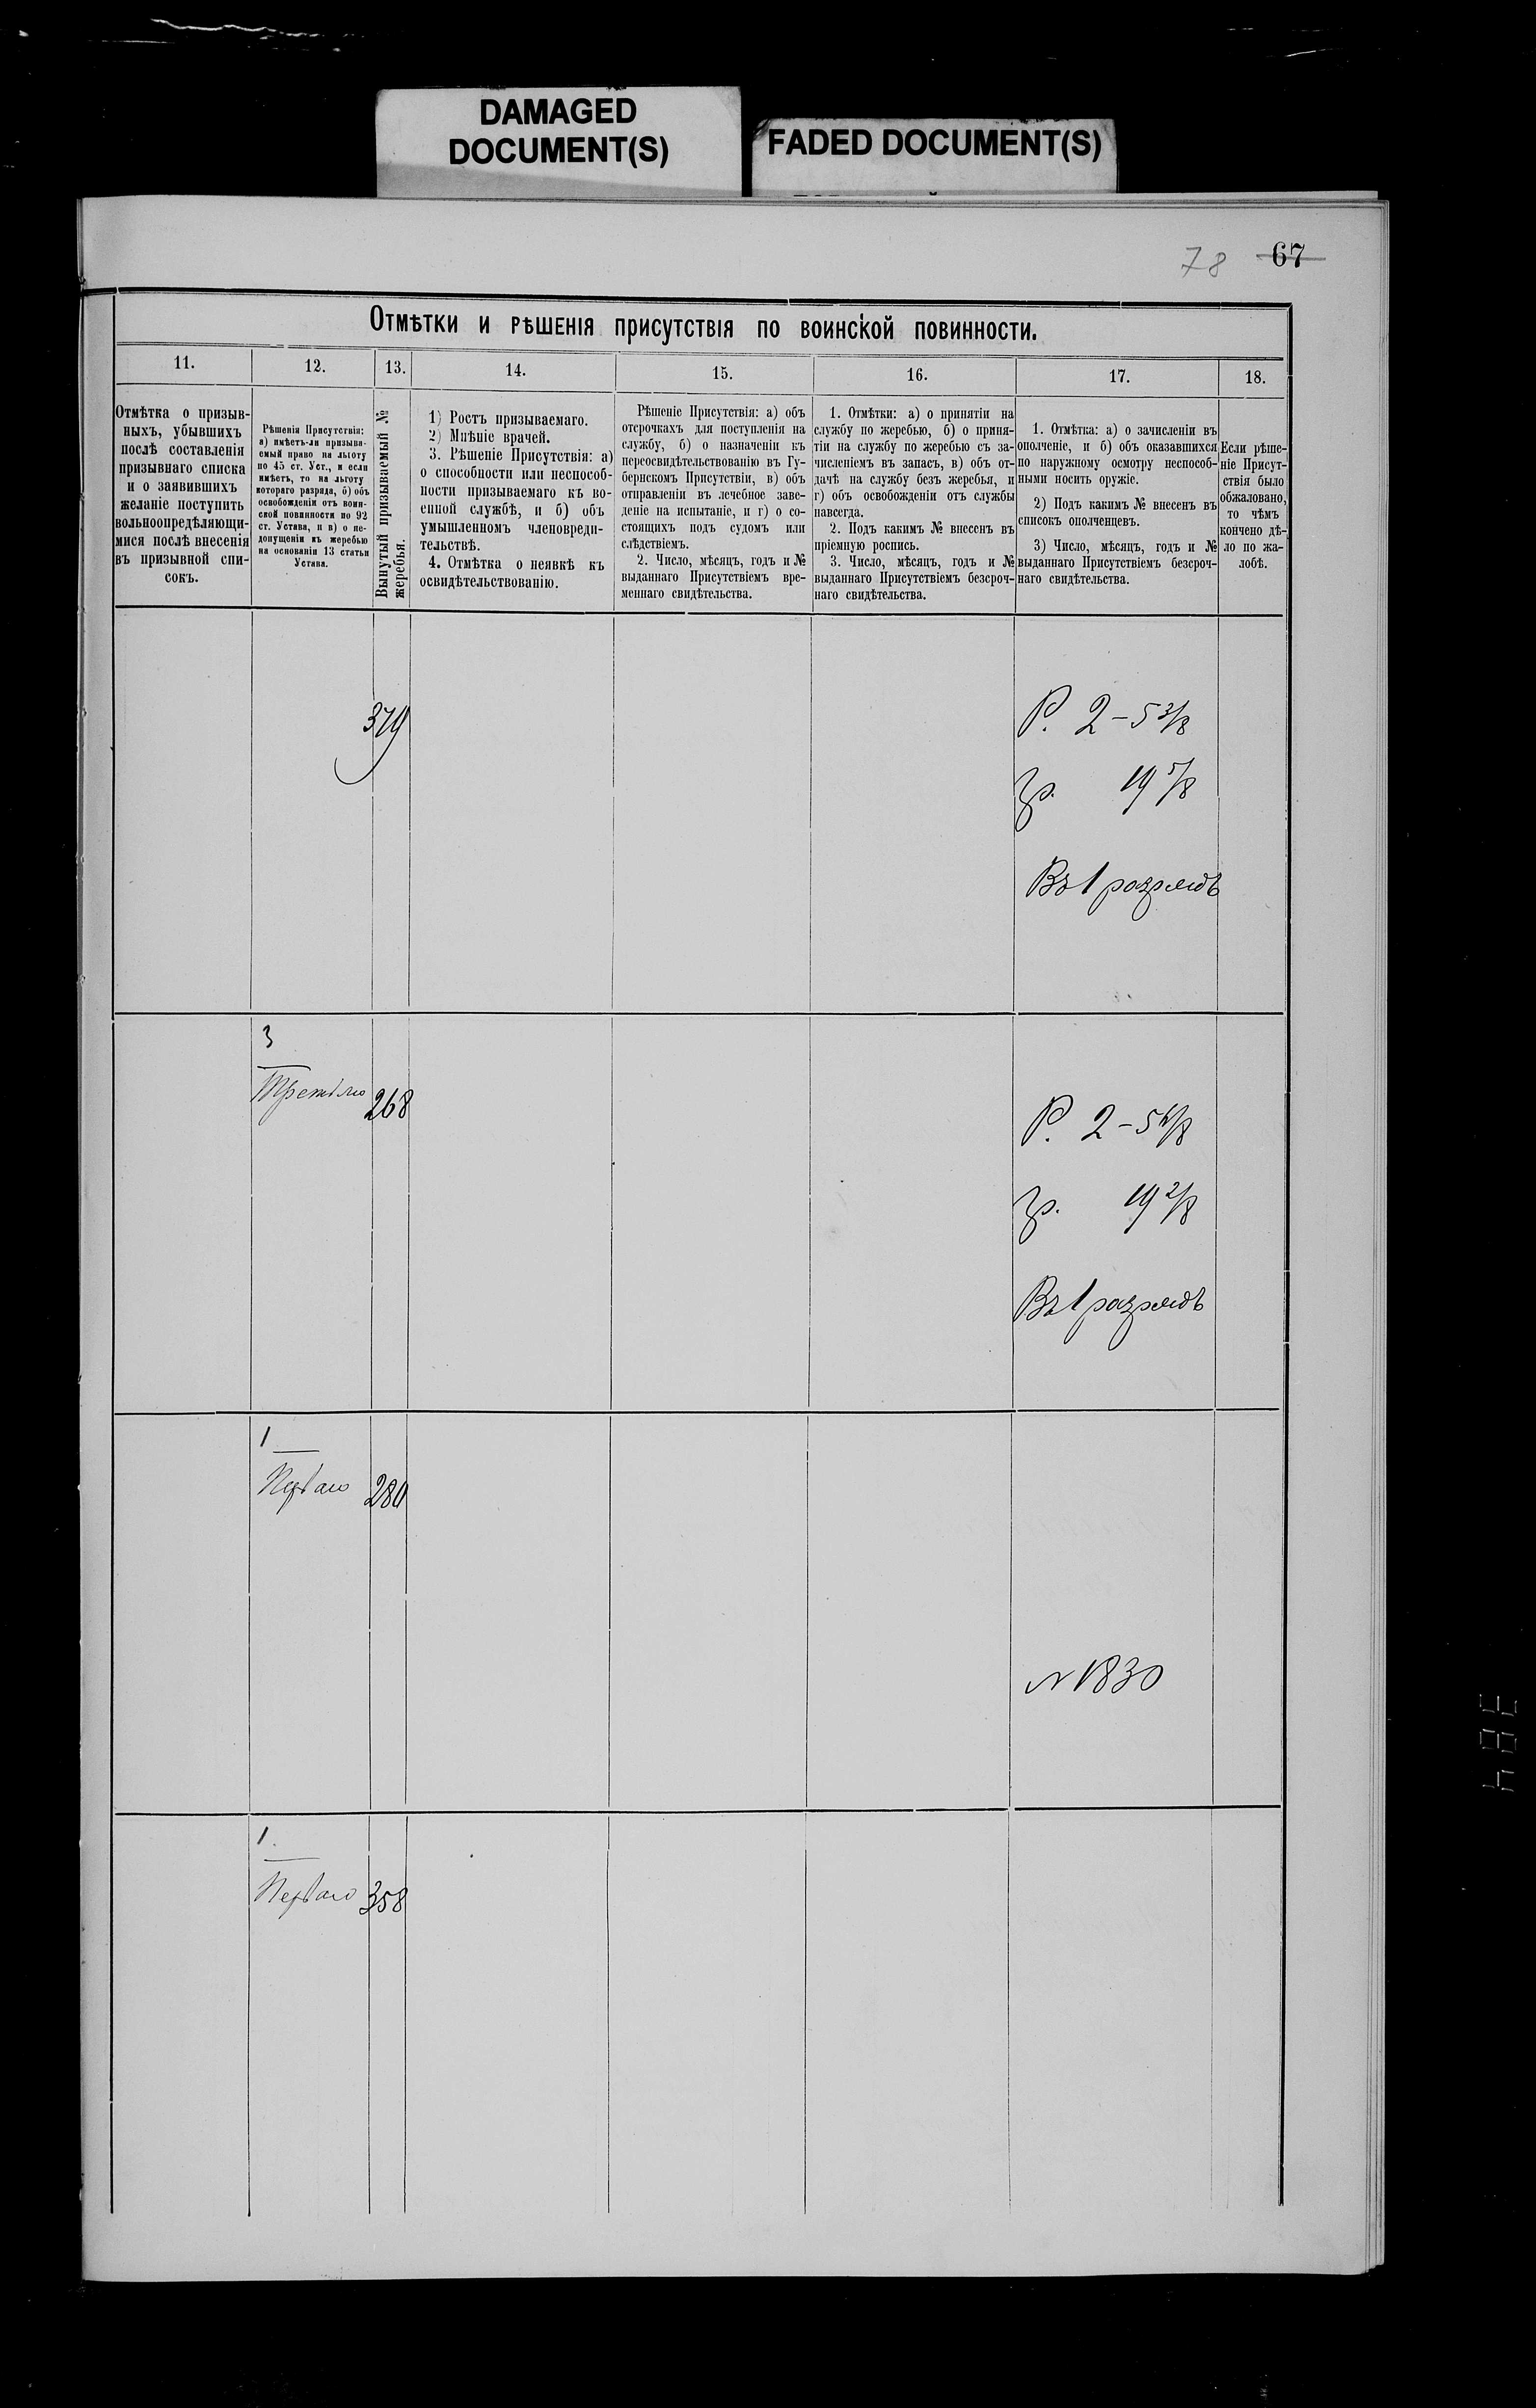 DAMAGED
DOCUMENT(S)
FADED DOCUMENT(S)
78 67
Отмѣтки и рѣшенія присутствія по воинской повинности.
11. 12. 13. 14. 15. 16. 17. 18.
Отмѣтка о призыв-
ныхъ, убывшихъ
послѣ составленія
призывнаго списка
и о заявившихъ
желаніе поступить
вольноопредѣляющи-
мися послѣ внесенія
въ призывной спи-
сокъ.
Рѣшенія Присутствія:
а) имѣетъ-ли призыва-
емый право на льготу
по 45 ст. Уст., и если
имѣетъ, то на льготу
котораго разряда, б) объ
освобожденіи отъ воин-
ской повинности по 92
ст. Устава, и в) о не-
допущеніи къ жеребью
на основаніи 13 статьи
Устава.
Вынутый призываемый №
жеребья.
1) Ростъ призываемаго.
2) Мнѣніе врачей.
3. Рѣшеніе Присутствія: а)
о способности или неспособ-
ности призываемаго къ во-
енной службѣ, и б) объ
умышленномъ членовреди-
тельствѣ.
4. Отмѣтка о неявкѣ къ
освидѣтельствованію.
Рѣшеніе Присутствія: а) объ
отсрочкахъ для поступленія на
службу, б) о назначеніи къ
переосвидѣтельствованію въ Гу-
бернскомъ Присутствіи, в) объ
отправленіи въ лечебное заве-
деніе на испытаніе, и г) о со-
стоящихъ подъ судомъ или
слѣдствіемъ.
2. Число, мѣсяцъ, годъ и №
выданнаго Присутствіемъ вре-
меннаго свидѣтельства.
1. Отмѣтки: а) о принятіи на
службу по жеребью, б) о приня-
тіи на службу по жеребью съ за-
численіемъ въ запасъ, в) объ от-
дачѣ на службу безъ жеребья, и
г) объ освобожденіи отъ службы
навсегда.
2. Подъ какимъ № внесенъ въ
пріемную роспись.
3. Число, мѣсяцъ, годъ и №
выданнаго Присутствіемъ безсроч-
наго свидѣтельства.
1. Отмѣтка: а) о зачисленіи въ
ополченіе, и б) объ оказавшихся
по наружному осмотру неспособ-
ными носить оружіе.
2) Подъ какимъ № внесенъ въ
списокъ ополченцевъ.
3) Число, мѣсяцъ, годъ и №
выданнаго Присутствіемъ безсроч-
наго свидѣтельства.
Если рѣше-
ніе Присут-
ствія было
обжаловано,
то чѣмъ
кончено дѣ-
ло по жа-
лобѣ.
379
Р. 2–5 3/8
гр. 19 5/8
Въ 1 разрядъ
3
Третьяго 268
Р. 2–5 4/8
гр. 19 2/8
Въ 1 разрядъ
1
Перваго 280
№ 1830
1.
Перваго 358
384